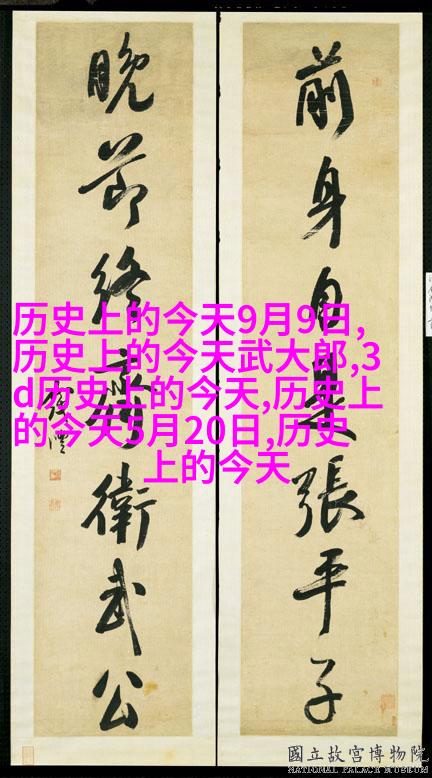 前身自是張平子
晚節終衛武公
历史上的今天9月9日,
历史上的今天武大郎,3
d历史上的今天,历史上
的今天5月20日,历史
上的今天
國立故宮博物院
NATIONAL PALACE MUSEUM